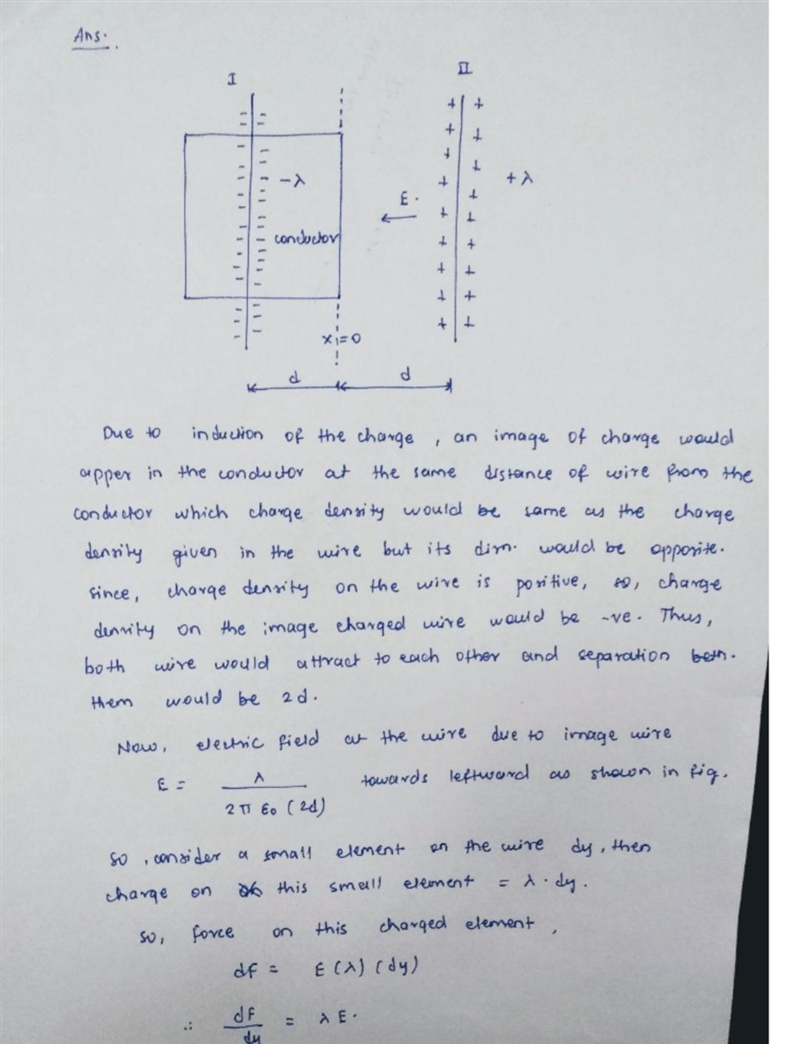 Ans.
I
II
-λ
+λ
E.
conductor
x=0
d
d
Due to induction of the charge, an image of charge would
apper in the conductor at the same distance of wire from the
conductor which charge density would be same as the charge
density given in the wire but its dirn. would be opposite.
since, charge density on the wire is positive, so, charge
density on the image charged wire would be -ve. Thus,
both wire would attract to each other and separation betn.
them would be 2d.
Now, electric field at the wire due to image wire
E = λ / 2π ε0 (2d) towards leftward as shown in fig.
so, consider a small element on the wire dy, then
charge on this small element = λ·dy.
so, force on this charged element,
dF = E(λ)(dy)
∴ dF/dy = λE.